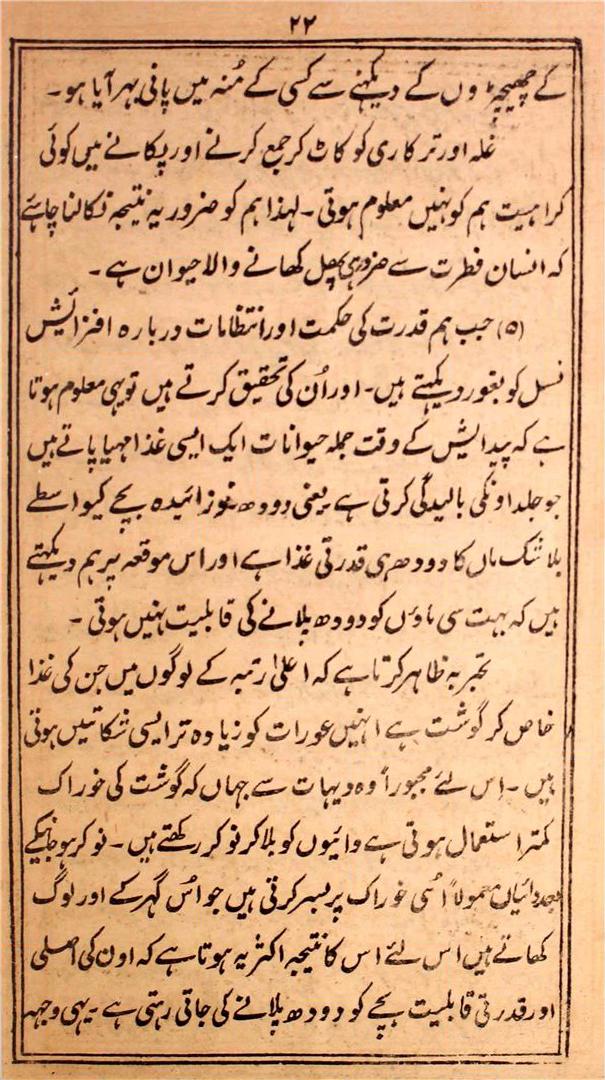 ۲۲
کے چھیچڑوں کے دیکہنے سے کسی کے مُنہ میں پانی بہر آیا ہو۔
غلہ اور ترکاری کو کاٹ کر جمع کرنے اور پکانے میں کوئی
کراہیت ہم کو نہیں معلوم ہوتی۔ لہذا ہم کو ضرور یہ نتیجہ نکالنا چاہئے
کہ انسان فطرت سے ضروری پھل کھانے والا حیوان ہے۔
(۵) جب ہم قدرت کی حکمت اور انتظامات دربارہ افزائیش
نسل کو بغور دیکہتے ہیں۔ اور اُن کی تحقیق کرتے ہیں تو یہی معلوم ہوتا
ہے کہ پیدائیش کے وقت جملہ حیوانات ایک ایسی غذا مہیا پاتے ہیں
جو جلد اونکی بالیدگی کرتی ہے یعنی دودھ۔ نوزائیدہ بچے کیواسطے
بلاشک ماں کا دودھ ہی قدرتی غذا ہے اور اس موقعہ پر ہم دیکہتے
ہیں کہ بہت سی ماؤں کو دودھ پلانے کی قابلیت نہیں ہوتی۔
تجربہ ظاہر کرتا ہے کہ اعلیٰ رتبہ کے لوگوں میں جن کی غذا
خاص کر گوشت ہے انہیں عورات کو زیادہ تر ایسی شکائتیں ہوتی
ہیں۔ اِس لئے مجبوراً وہ دیہات سے جہاں کہ گوشت کی خوراک
کمتر استعمال ہوتی ہے دائیوں کو بلا کر نوکر رکھتے ہیں۔ نوکر ہو جانیکے
بعد دائیاں معمولاً اُسی خوراک پر بسر کرتی ہیں جو اُس گہر کے اور لوگ
کھاتے ہیں اس لئے اس کا نتیجہ اکثر یہ ہوتا ہے کہ اون کی اصلی
اور قدرتی قابلیت بچے کو دودھ پلانے کی جاتی رہتی ہے۔ یہی وجہہ